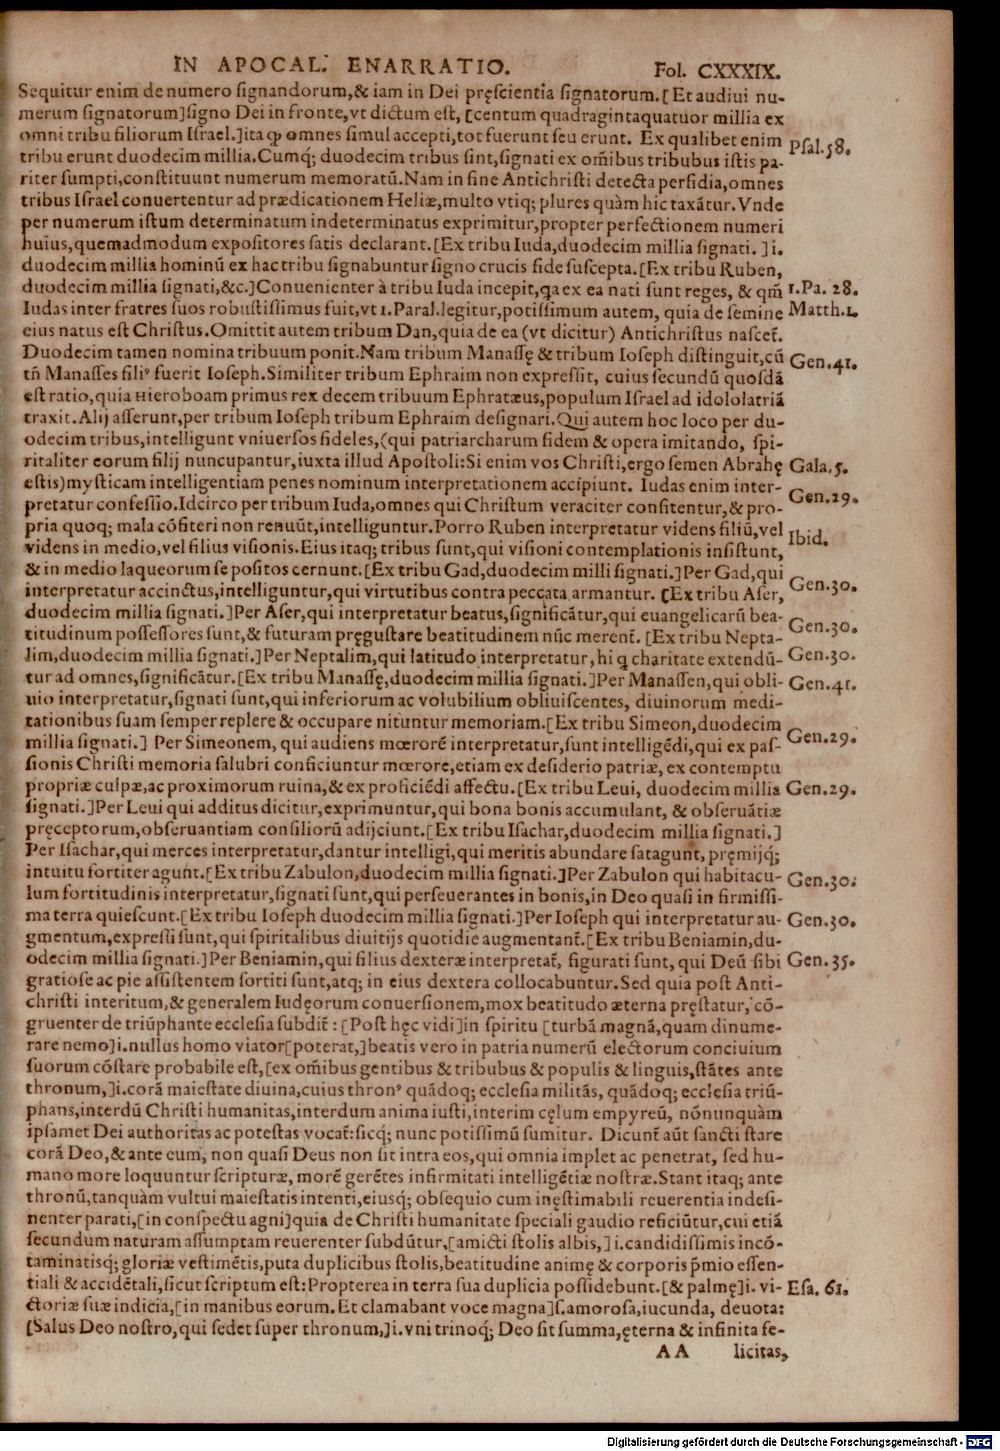 IN APOCAL. ENARRATIO. Fol. CXXXIX.
Sequitur enim de numero signandorum,& iam in Dei pręscientia signatorum.[Et audiui nu-
merum signatorum]signo Dei in fronte,vt dictum est, [centum quadragintaquatuor millia ex
omni tribu filiorum Israel.]ita ꝙ omnes simul accepti,tot fuerunt seu erunt. Ex qualibet enim
Psal.58.
tribu erunt duodecim millia.Cumq́; duodecim tribus sint,signati ex om̃ibus tribubus istis pa-
riter sumpti,constituunt numerum memoratũ.Nam in fine Antichristi detecta perfidia,omnes
tribus Israel conuertentur ad prædicationem Heliæ,multo vtiq; plures quàm hic taxãtur.Vnde
per numerum istum determinatum indeterminatus exprimitur,propter perfectionem numeri
huius,quemadmodum expositores satis declarant.[Ex tribu Iuda,duodecim millia signati. ]i.
duodecim millia hominũ ex hac tribu signabuntur signo crucis fide suscepta.[Ex tribu Ruben,
duodecim millia signati,&c.]Conuenienter à tribu Iuda incepit,ꝗa ex ea nati sunt reges, & qm̃
1.Pa. 28.
Iudas inter fratres suos robustissimus fuit,vt 1.Paral.legitur,potissimum autem, quia de semine
Matth.1.
eius natus est Christus.Omittit autem tribum Dan,quia de ea (vt dicitur) Antichristus nascet̃.
Duodecim tamen nomina tribuum ponit.Nam tribum Manassę & tribum Ioseph distinguit,cũ
Gen.41.
tñ Manasses filiꝰ fuerit Ioseph.Similiter tribum Ephraim non expressit, cuius secundũ quosdã
est ratio,quia Hieroboam primus rex decem tribuum Ephratæus,populum Israel ad idololatriã
traxit.Alij asserunt,per tribum Ioseph tribum Ephraim designari.Qui autem hoc loco per du-
odecim tribus,intelligunt vniuersos fideles,(qui patriarcharum fidem & opera imitando, spi-
ritaliter eorum filij nuncupantur,iuxta illud Apostoli:Si enim vos Christi,ergo semen Abrahę
Gala.5.
estis)mysticam intelligentiam penes nominum interpretationem accipiunt. Iudas enim inter-
Gen.29.
pretatur confessio.Idcirco per tribum Iuda,omnes qui Christum veraciter confitentur,& pro-
pria quoq; mala cõfiteri non renuũt,intelliguntur.Porro Ruben interpretatur videns filiũ,vel
Ibid.
videns in medio,vel filius visionis.Eius itaq; tribus sunt,qui visioni contemplationis insistunt,
& in medio laqueorum se positos cernunt.[Ex tribu Gad,duodecim milli signati.]Per Gad,qui
Gen.30.
interpretatur accinctus,intelliguntur,qui virtutibus contra peccata armantur. [Ex tribu Aser,
duodecim millia signati.]Per Aser,qui interpretatur beatus,significãtur,qui euangelicarũ bea-
Gen.30.
titudinum possessores sunt,& futuram pręgustare beatitudinem nũc merent̃. [Ex tribu Nepta-
lim,duodecim millia signati.]Per Neptalim,qui latitudo interpretatur,hi ꝗ charitate extendũ-
Gen.30.
tur ad omnes,significãtur.[Ex tribu Manassę,duodecim millia signati.]Per Manassen,qui obli-
Gen.41.
uio interpretatur,signati sunt,qui inferiorum ac volubilium obliuiscentes, diuinorum medi-
tationibus suam semper replere & occupare nituntur memoriam.[Ex tribu Simeon,duodecim
millia signati.] Per Simeonem, qui audiens mœrorẽ interpretatur,sunt intelligẽdi,qui ex pas-
Gen.29.
sionis Christi memoria salubri conficiuntur mœrore,etiam ex desiderio patriæ, ex contemptu
propriæ culpæ,ac proximorum ruina,& ex proficiẽdi affectu.[Ex tribu Leui, duodecim millia
Gen.29.
signati.]Per Leui qui additus dicitur,exprimuntur,qui bona bonis accumulant, & obseruãtiæ
pręceptorum,obseruantiam consiliorũ adijciunt.[Ex tribu Isachar,duodecim millia signati.]
Per Isachar,qui merces interpretatur,dantur intelligi,qui meritis abundare satagunt, pręmijq́;
intuitu fortiter agunt.[Ex tribu Zabulon,duodecim millia signati.]Per Zabulon qui habitacu-
Gen.30.
lum fortitudinis interpretatur,signati sunt,qui perseuerantes in bonis,in Deo quasi in firmissi-
ma terra quiescunt.[Ex tribu Ioseph duodecim millia signati.]Per Ioseph qui interpretatur au-
Gen.30.
gmentum,expressi sunt,qui spiritalibus diuitijs quotidie augmentant̃.[Ex tribu Beniamin,du-
odecim millia signati.]Per Beniamin,qui filius dexteræ interpretat̃, figurati sunt, qui Deũ sibi
Gen.35.
gratiose ac pie assistentem sortiti sunt,atq; in eius dextera collocabuntur.Sed quia post Anti-
christi interitum,& generalem Iudęorum conuersionem,mox beatitudo æterna pręstatur, cõ-
gruenter de triũphante ecclesia subdit̃ : [Post hęc vidi]in spiritu [turbã magnã,quam dinume-
rare nemo]i.nullus homo viator[poterat,]beatis vero in patria numerũ electorum conciuium
suorum cõstare probabile est,[ex om̃ibus gentibus & tribubus & populis & linguis,stãtes ante
thronum,]i.corã maiestate diuina,cuius thronꝰ quãdoq; ecclesia militãs, quãdoq; ecclesia triũ-
phans,interdũ Christi humanitas,interdum anima iusti,interim cęlum empyreũ, nõnunquàm
ipsamet Dei authoritas ac potestas vocat̃:sicq́; nunc potissimũ sumitur. Dicunt̃ aũt sancti stare
corã Deo,& ante eum, non quasi Deus non sit intra eos,qui omnia implet ac penetrat, sed hu-
mano more loquuntur scripturæ, morẽ gerẽtes infirmitati intelligẽtiæ nostræ.Stant itaq; ante
thronũ,tanquàm vultui maiestatis intenti,eiusq́; obsequio cum inęstimabili reuerentia indesi-
nenter parati,[in conspectu agni]quia de Christi humanitate speciali gaudio reficiũtur,cui etiã
secundum naturam assumptam reuerenter subdũtur,[amicti stolis albis,] i.candidissimis incõ-
taminatisq́; gloriæ vestimẽtis,puta duplicibus stolis,beatitudine animę & corporis p̃mio essen-
tiali & accidẽtali,sicut scriptum est:Propterea in terra sua duplicia possidebunt.[& palmę]i. vi-
Esa. 61.
ctoriæ suæ indicia,[in manibus eorum.Et clamabant voce magna]s.amorosa,iucunda, deuota:
[Salus Deo nostro,qui sedet super thronum,]i.vni trinoq́; Deo sit summa,ęterna & infinita fe-
AA licitas,
Digitalisierung gefördert durch die Deutsche Forschungsgemeinschaft - DFG